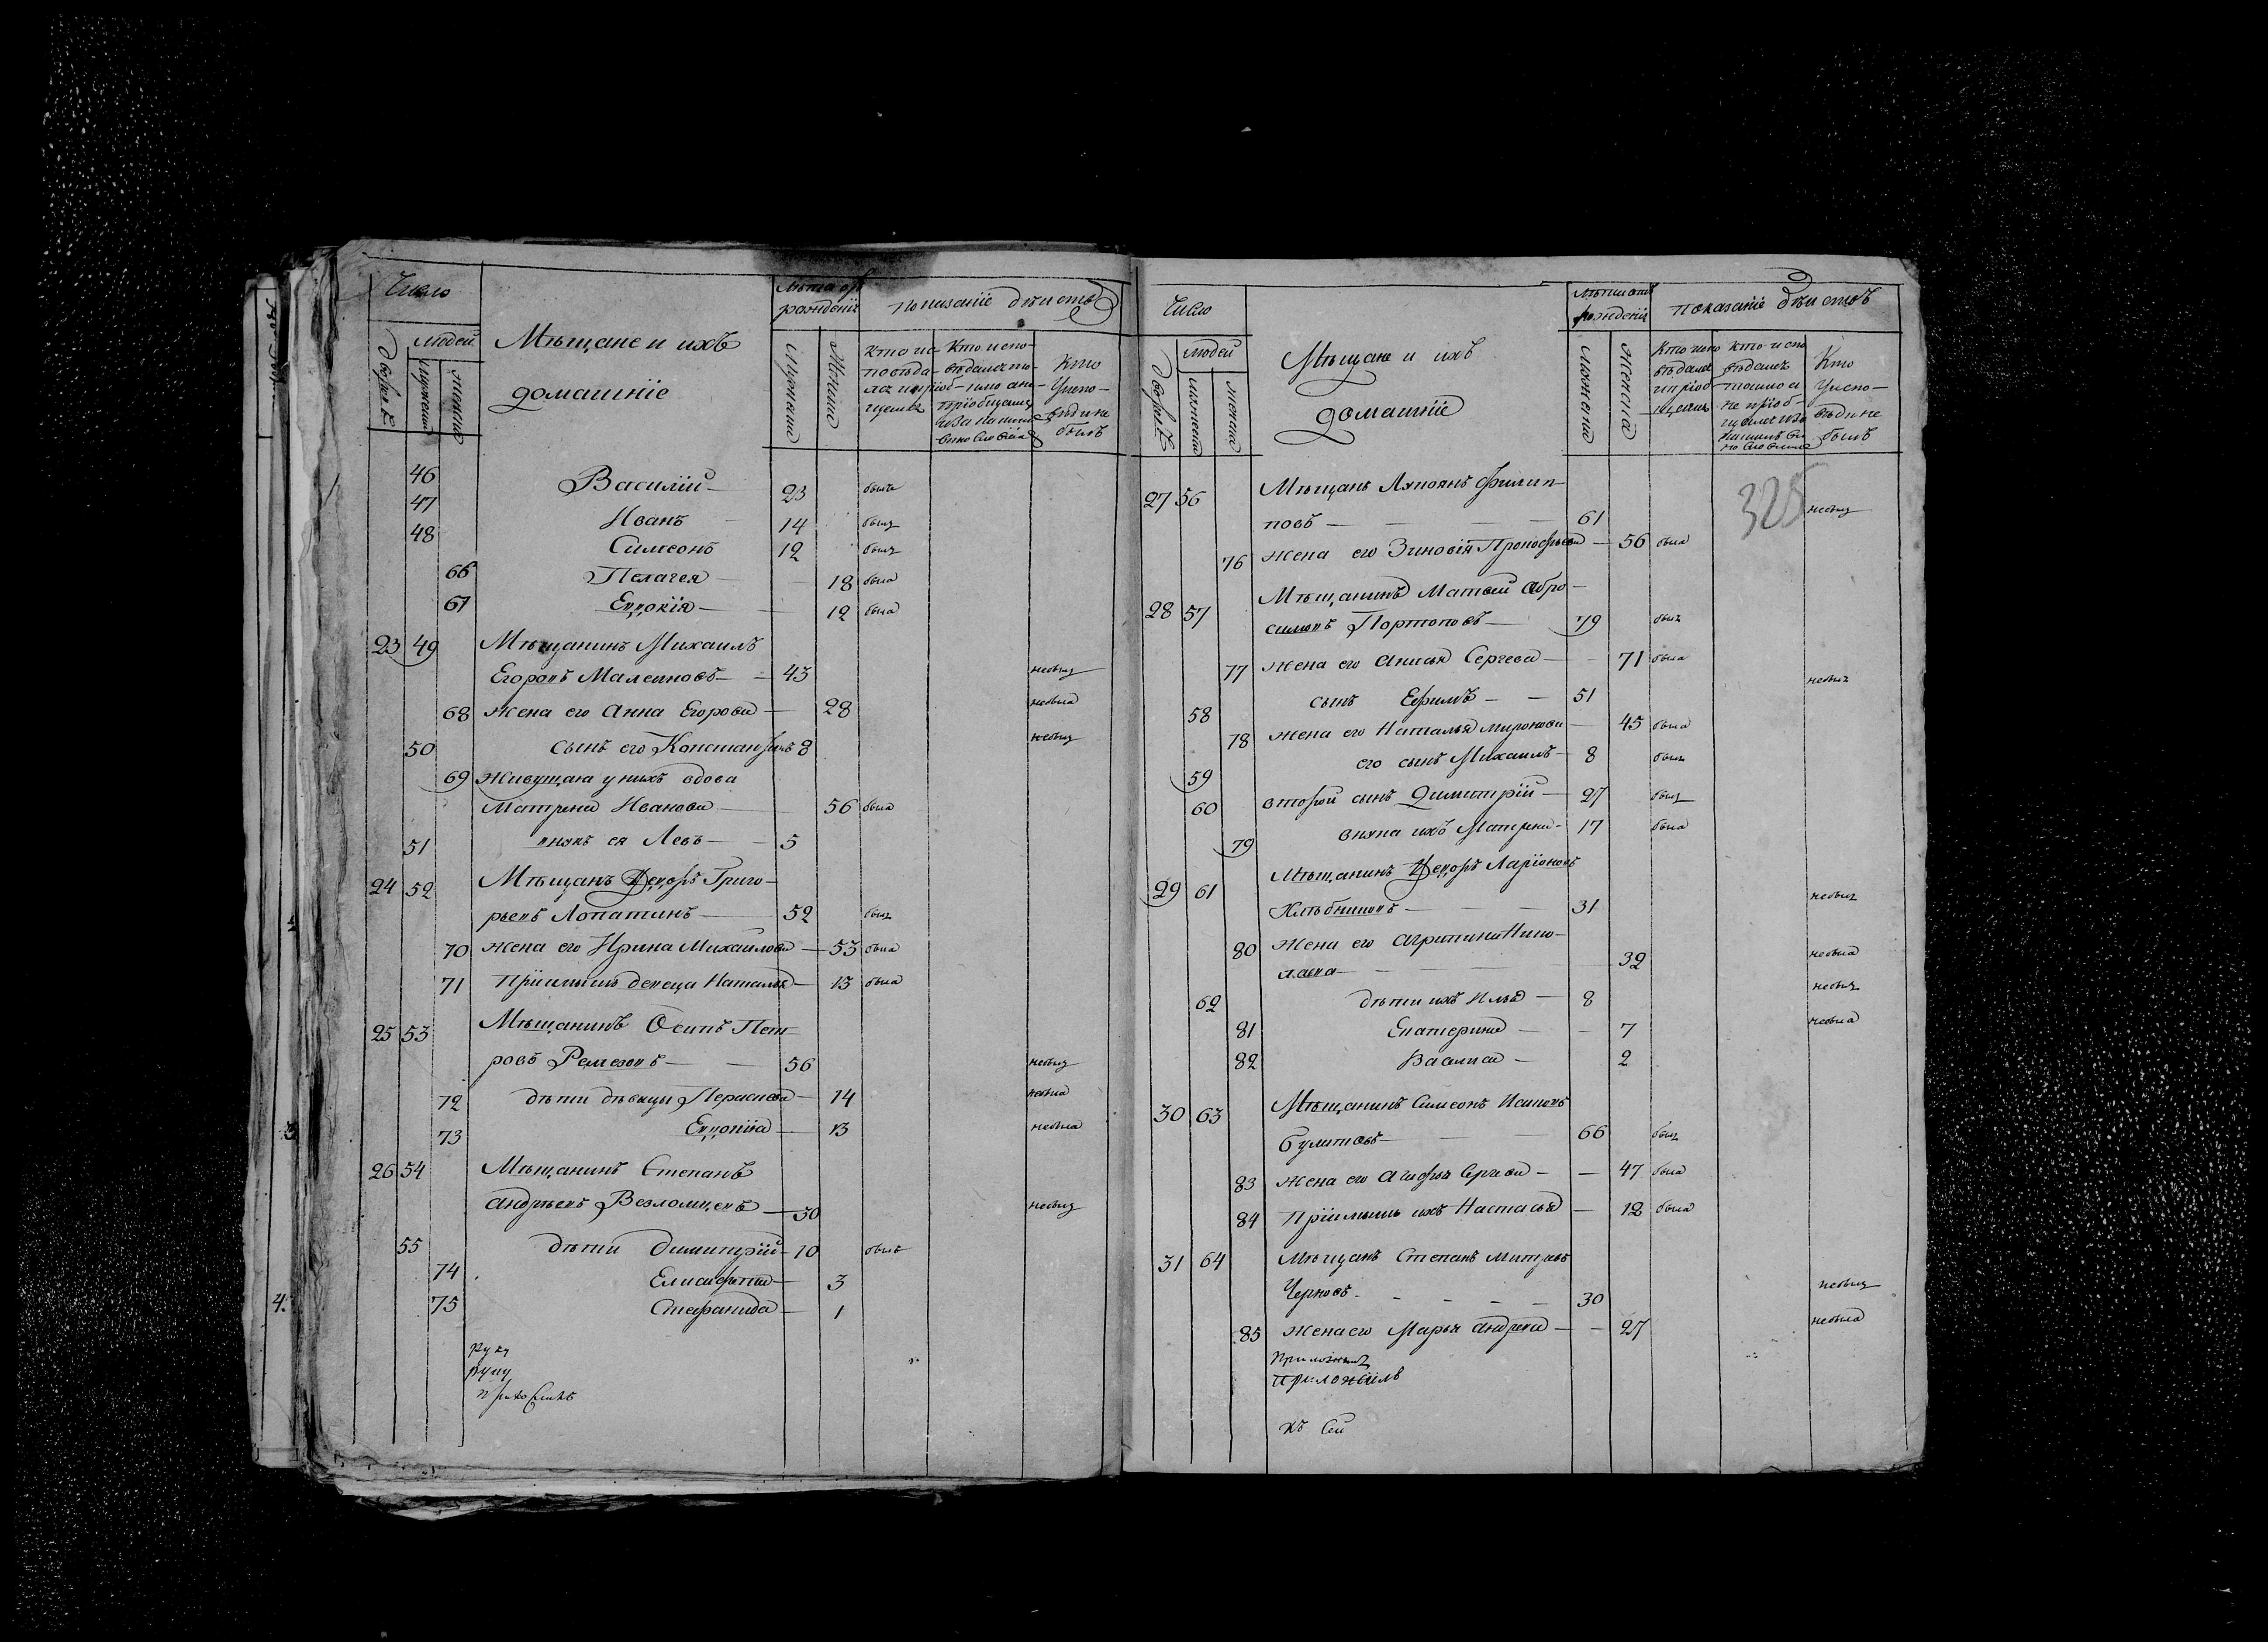 Число
Мѣщане и ихъ
домашніе
Лѣта отъ
рожденія
показаніе дѣиствъ
Дворовъ
людей
Мужеска
женска
Мужеска
Женска
Кто ис-
повѣда-
лся и пріоб-
щался
Кто испо-
вѣдался то-
лько а не
пріобщался
Кто
Уиспо-
вѣди не
былъ
46 Василіи 23 былъ
47 Иванъ 14 былъ
48 Симеонъ 12 былъ
66 Пелагея 18 была
67 Евдокія 12 была
23 49 Мѣщанинъ Михаилъ
Егоровъ Малеиновъ 43 небылъ
68 жена его Анна Егорова 28 небыла
50 сынъ его Константинъ 8 небылъ
69 Живущая у нихъ вдова
Матрена Иванова 56 была
51 внукъ ея Левъ 5
24 52 Мѣщанъ Федоръ Григо-
рьевъ Лопатинъ 52 былъ
70 жена его Ирина Михаилова 53 была
71 Пріимышъ девеца Наталья 13 была
25 53 Мѣщанинъ Осипъ Пет-
ровъ Ремезовъ 56 небылъ
72 дѣти дѣвицы Парасковя 14 небыла
73 Евдокиа 13 небыла
26 54 Мѣщанинъ Степанъ
Андрѣевъ Возломцевъ 30 небылъ
55 дѣти Димитріи 10 былъ
74 Елисафета 3
75 Стефанида 1
руку
руку
Число
Мѣщане и ихъ
домашніе
Лѣта отъ
рожденія
показаніе дѣиствъ
Дворовъ
людей
мужеска
женска
Мужеска
Женска
Кто испо
вѣдался
ипріоб
щался
кто испо
вѣдался
толко а
не пріоб-
щался
Кто
Уиспо-
вѣди не
былъ
325
27 56 Мѣщанъ Лукоянъ Филип-
повъ 61 небылъ
76 жена его Зиновія Прокофьева 56 была
28 57 Мѣщанинъ Матвеи Абро-
симовъ Портоповъ 79 былъ
77 жена его Анисья Сергева 71 была
58 сынъ Ефимъ 51 небылъ
78 жена его Наталья Миронова 45 была
59 его сынъ Михаилъ 8 былъ
60 второй сынъ Димитріи 27 былъ
79 внука ихъ Матрена 17 была
29 61 Мѣщанинъ Федоръ Ларіоновъ
Хлѣбниковъ 31 небылъ
80 жена его Агрипина Нико-
лаева 32 небыла
62 дѣти ихъ Илья 8 небылъ
81 Екатерина 7 небыла
82 Василиса 2
30 63 Мѣщанинъ Симеонъ Исаковъ
Булатовъ 66 былъ
83 жена его Агафья Сергеева 47 была
84 Пріимышъ ихъ Настасья 12 была
31 64 Мѣщанъ Степанъ Митревъ
Черновъ 30 небылъ
85 Жена его Марья Андреева 27 небыла
приложилъ
приложилъ
къ Сей